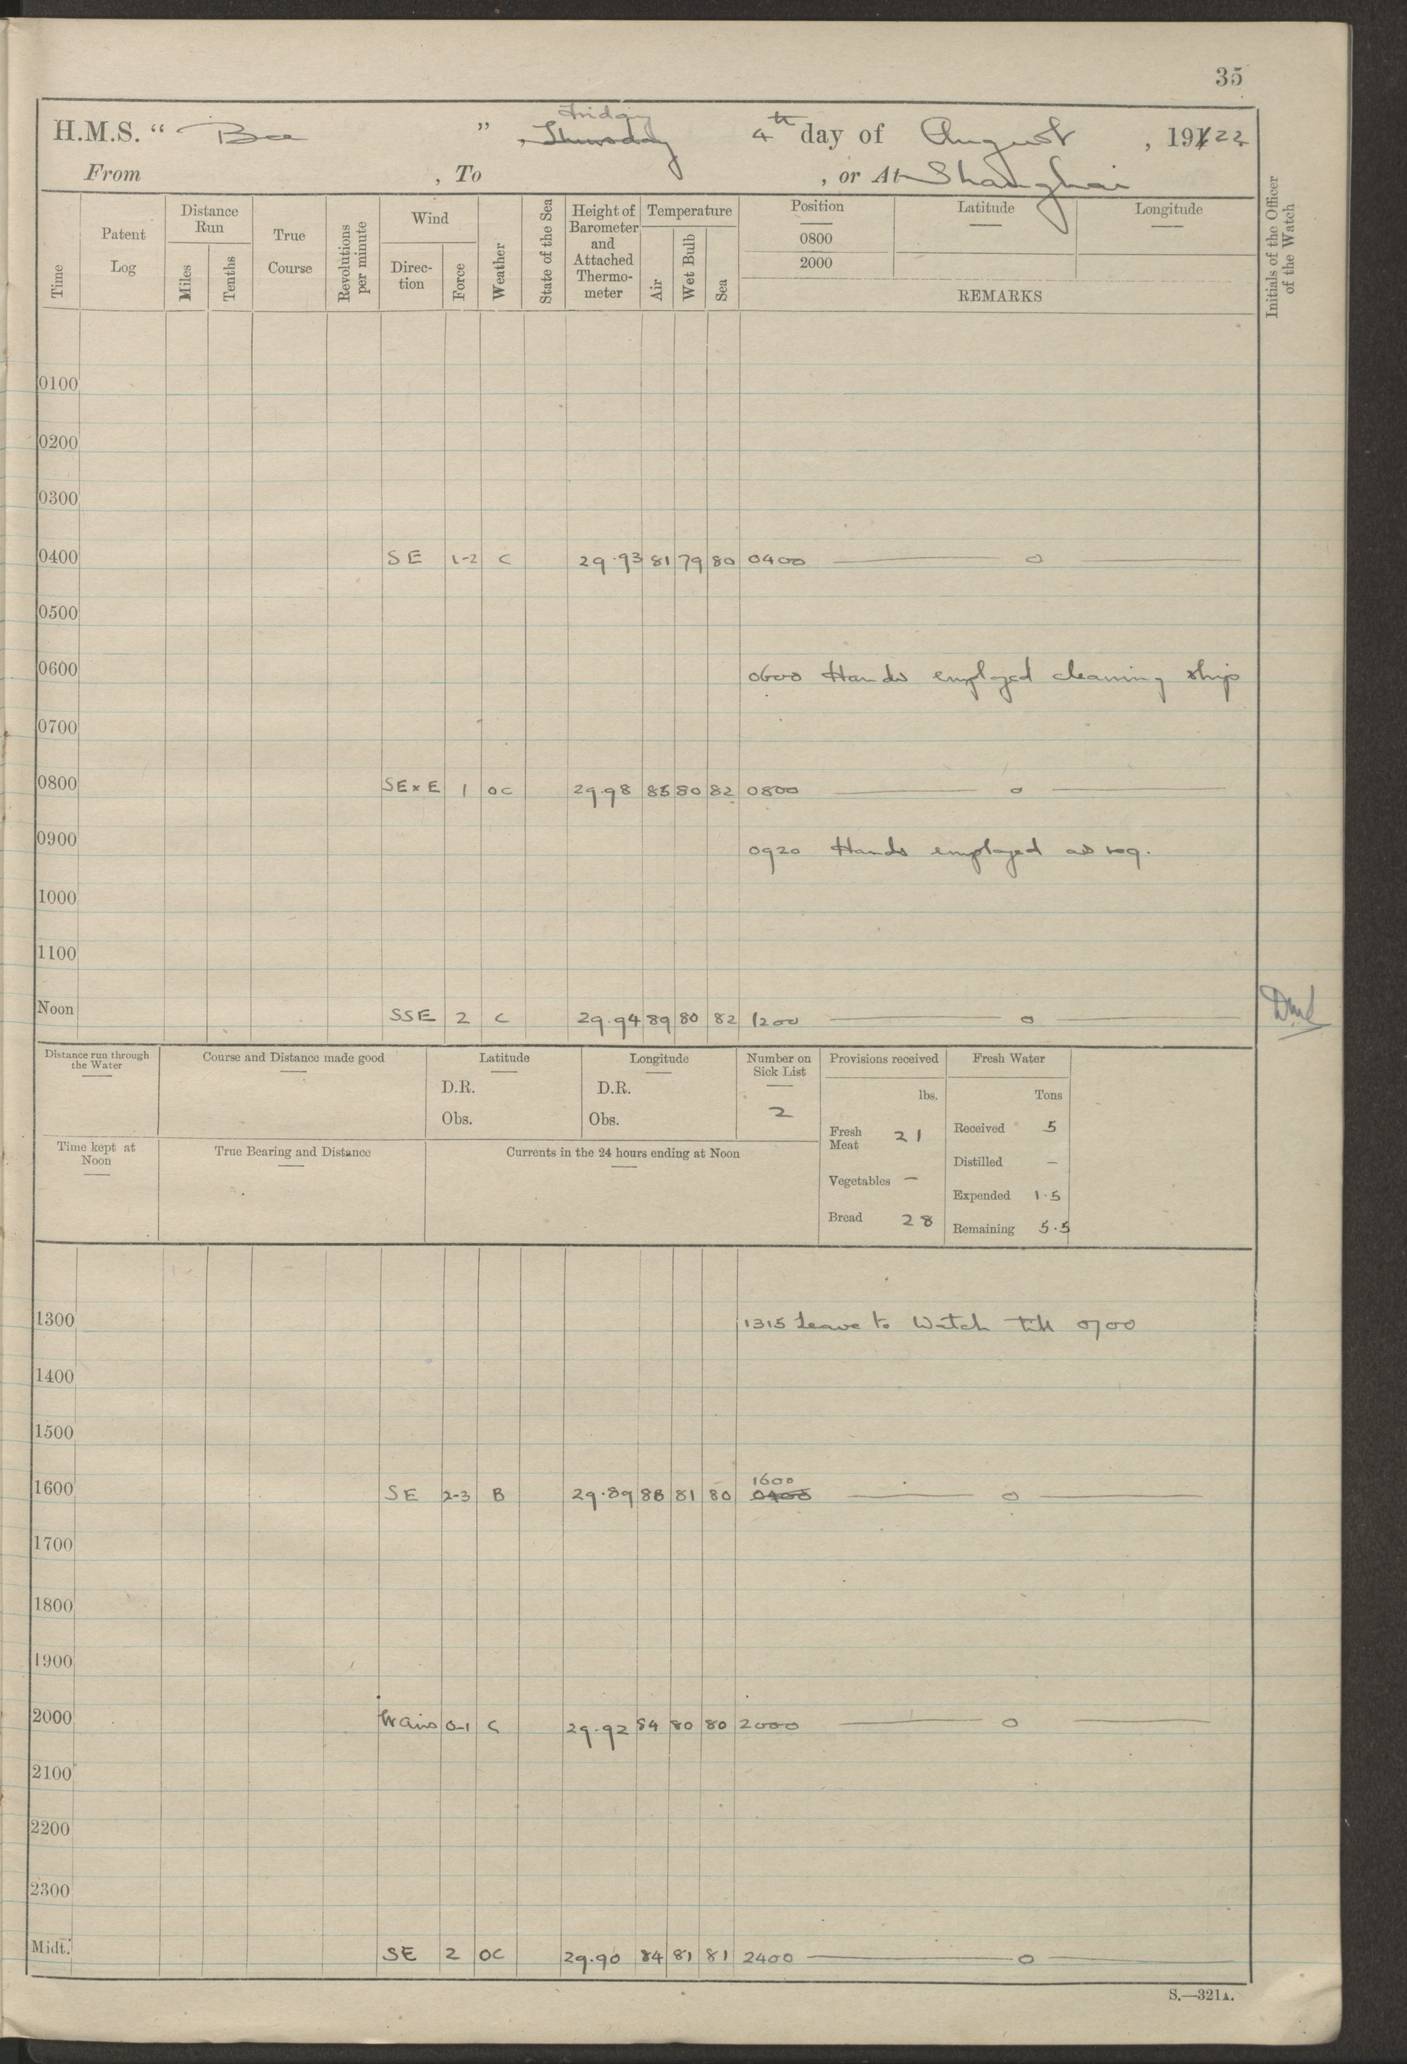 35
H.M.S. " Bee " , Thursday Friday 4th day of August , 191 22
From , To , or At Shanghai
Time
Patent Log
Distance Run
Miles
Tenths
True Course
Revolutions per minute
Wind
Direc-tion
Force
Weather
State of the Sea
Height of Barometer and Attached Thermo-meter
Temperature
Air
Wet Bulb
Sea
Position
0800
2000
Latitude
Longitude
REMARKS
Initials of the Officer of the Watch
0100
0200
0300
0400 SE 1-2 C 29.93 81 79 80 0400 — o —
0500
0600 0600 Hands employed cleaning ship
0700
0800 SExE 1 OC 29.98 85 80 82 0800 — o —
0900 0920 Hands employed as req.
1000
1100
Noon SSE 2 C 29.94 89 80 82 1200 — o —
Distance run through the Water
Course and Distance made good
Latitude
D.R.
Obs.
Longitude
D.R.
Obs.
Number on Sick List
2
Provisions received
lbs.
Fresh Meat 21
Vegetables —
Bread 28
Fresh Water
Tons
Received 5
Distilled —
Expended 1.5
Remaining 5.5
Time kept at Noon
True Bearing and Distance
Currents in the 24 hours ending at Noon
1300 1315 Leave to Watch till 0700
1400
1500
1600 SE 2-3 B 29.89 88 81 80 0400 1600 — o —
1700
1800
1900
2000 Vrains 0-1 C 29.92 84 80 80 2000 — o —
2100
2200
2300
Midt. SE 2 OC 29.90 84 81 81 2400 — o —
S.—321A.